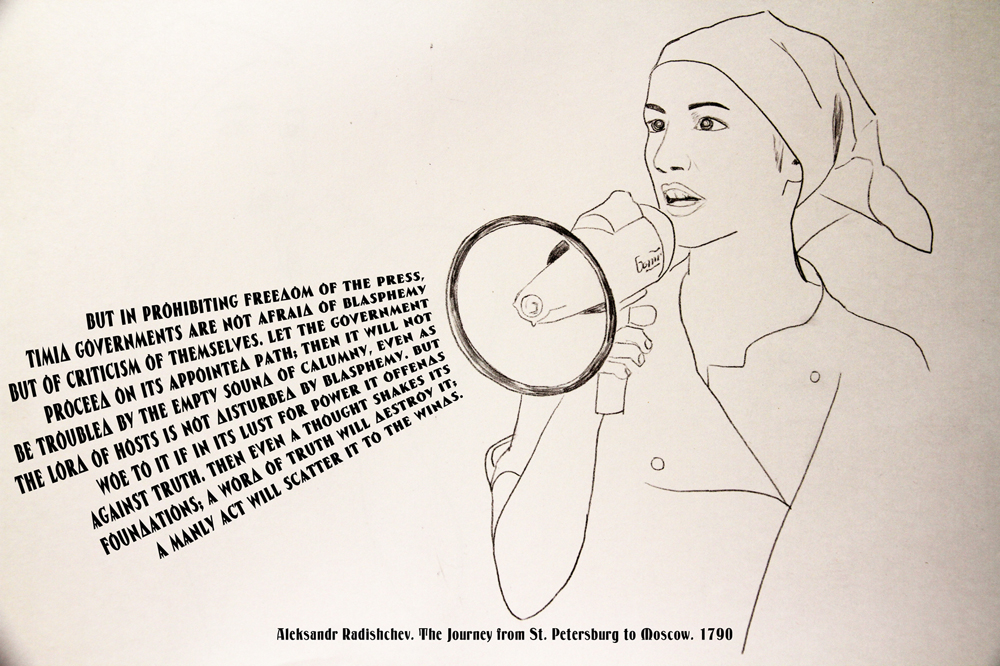 BUT IN PROHIBITING FREEDOM OF THE PRESS,
TIMID GOVERNMENTS ARE NOT AFRAID OF BLASPHEMY
BUT OF CRITICISM OF THEMSELVES. LET THE GOVERNMENT
PROCEED ON ITS APPOINTED PATH; THEN IT WILL NOT
BE TROUBLED BY THE EMPTY SOUND OF CALUMNY, EVEN AS
THE LORD OF HOSTS IS NOT DISTURBED BY BLASPHEMY. BUT
WOE TO IT IF IN ITS LUST FOR POWER IT OFFENDS
AGAINST TRUTH. THEN EVEN A THOUGHT SHAKES ITS
FOUNDATIONS; A WORD OF TRUTH WILL DESTROY IT;
A MANLY ACT WILL SCATTER IT TO THE WINDS.
Aleksandr Radishchev. The Journey from St. Petersburg to Moscow. 1790